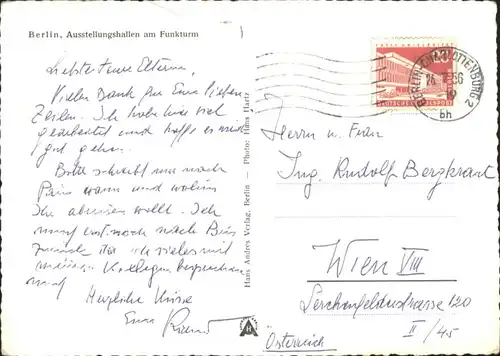 Berlin, Ausstellungshallen am Funkturm
Liebste teure Eltern,
Vielen Dank für Eure lieben
Zeilen. Ich habe hier viel
gearbeitet und hoffe es wird
gut gehen.
Bitte schreibt mir nach
Paris wann und wohin
Ihr abreisen wollt. Ich
muß erst noch nach
zurück da ich vieles mit
meinen Kollegen besprechen
muß
Herzliche Küsse
Euer
Hans Andres Verlag, Berlin — Photo: Hans Hartz
BERLIN-CHARLOTTENBURG 2
56
bh
DEUTSCHE BUNDESPOST
Herrn u. Frau
Ing. Rudolf Bergkraut
Wien VIII
Lerchenfelderstrasse 120
II/45
Österreich